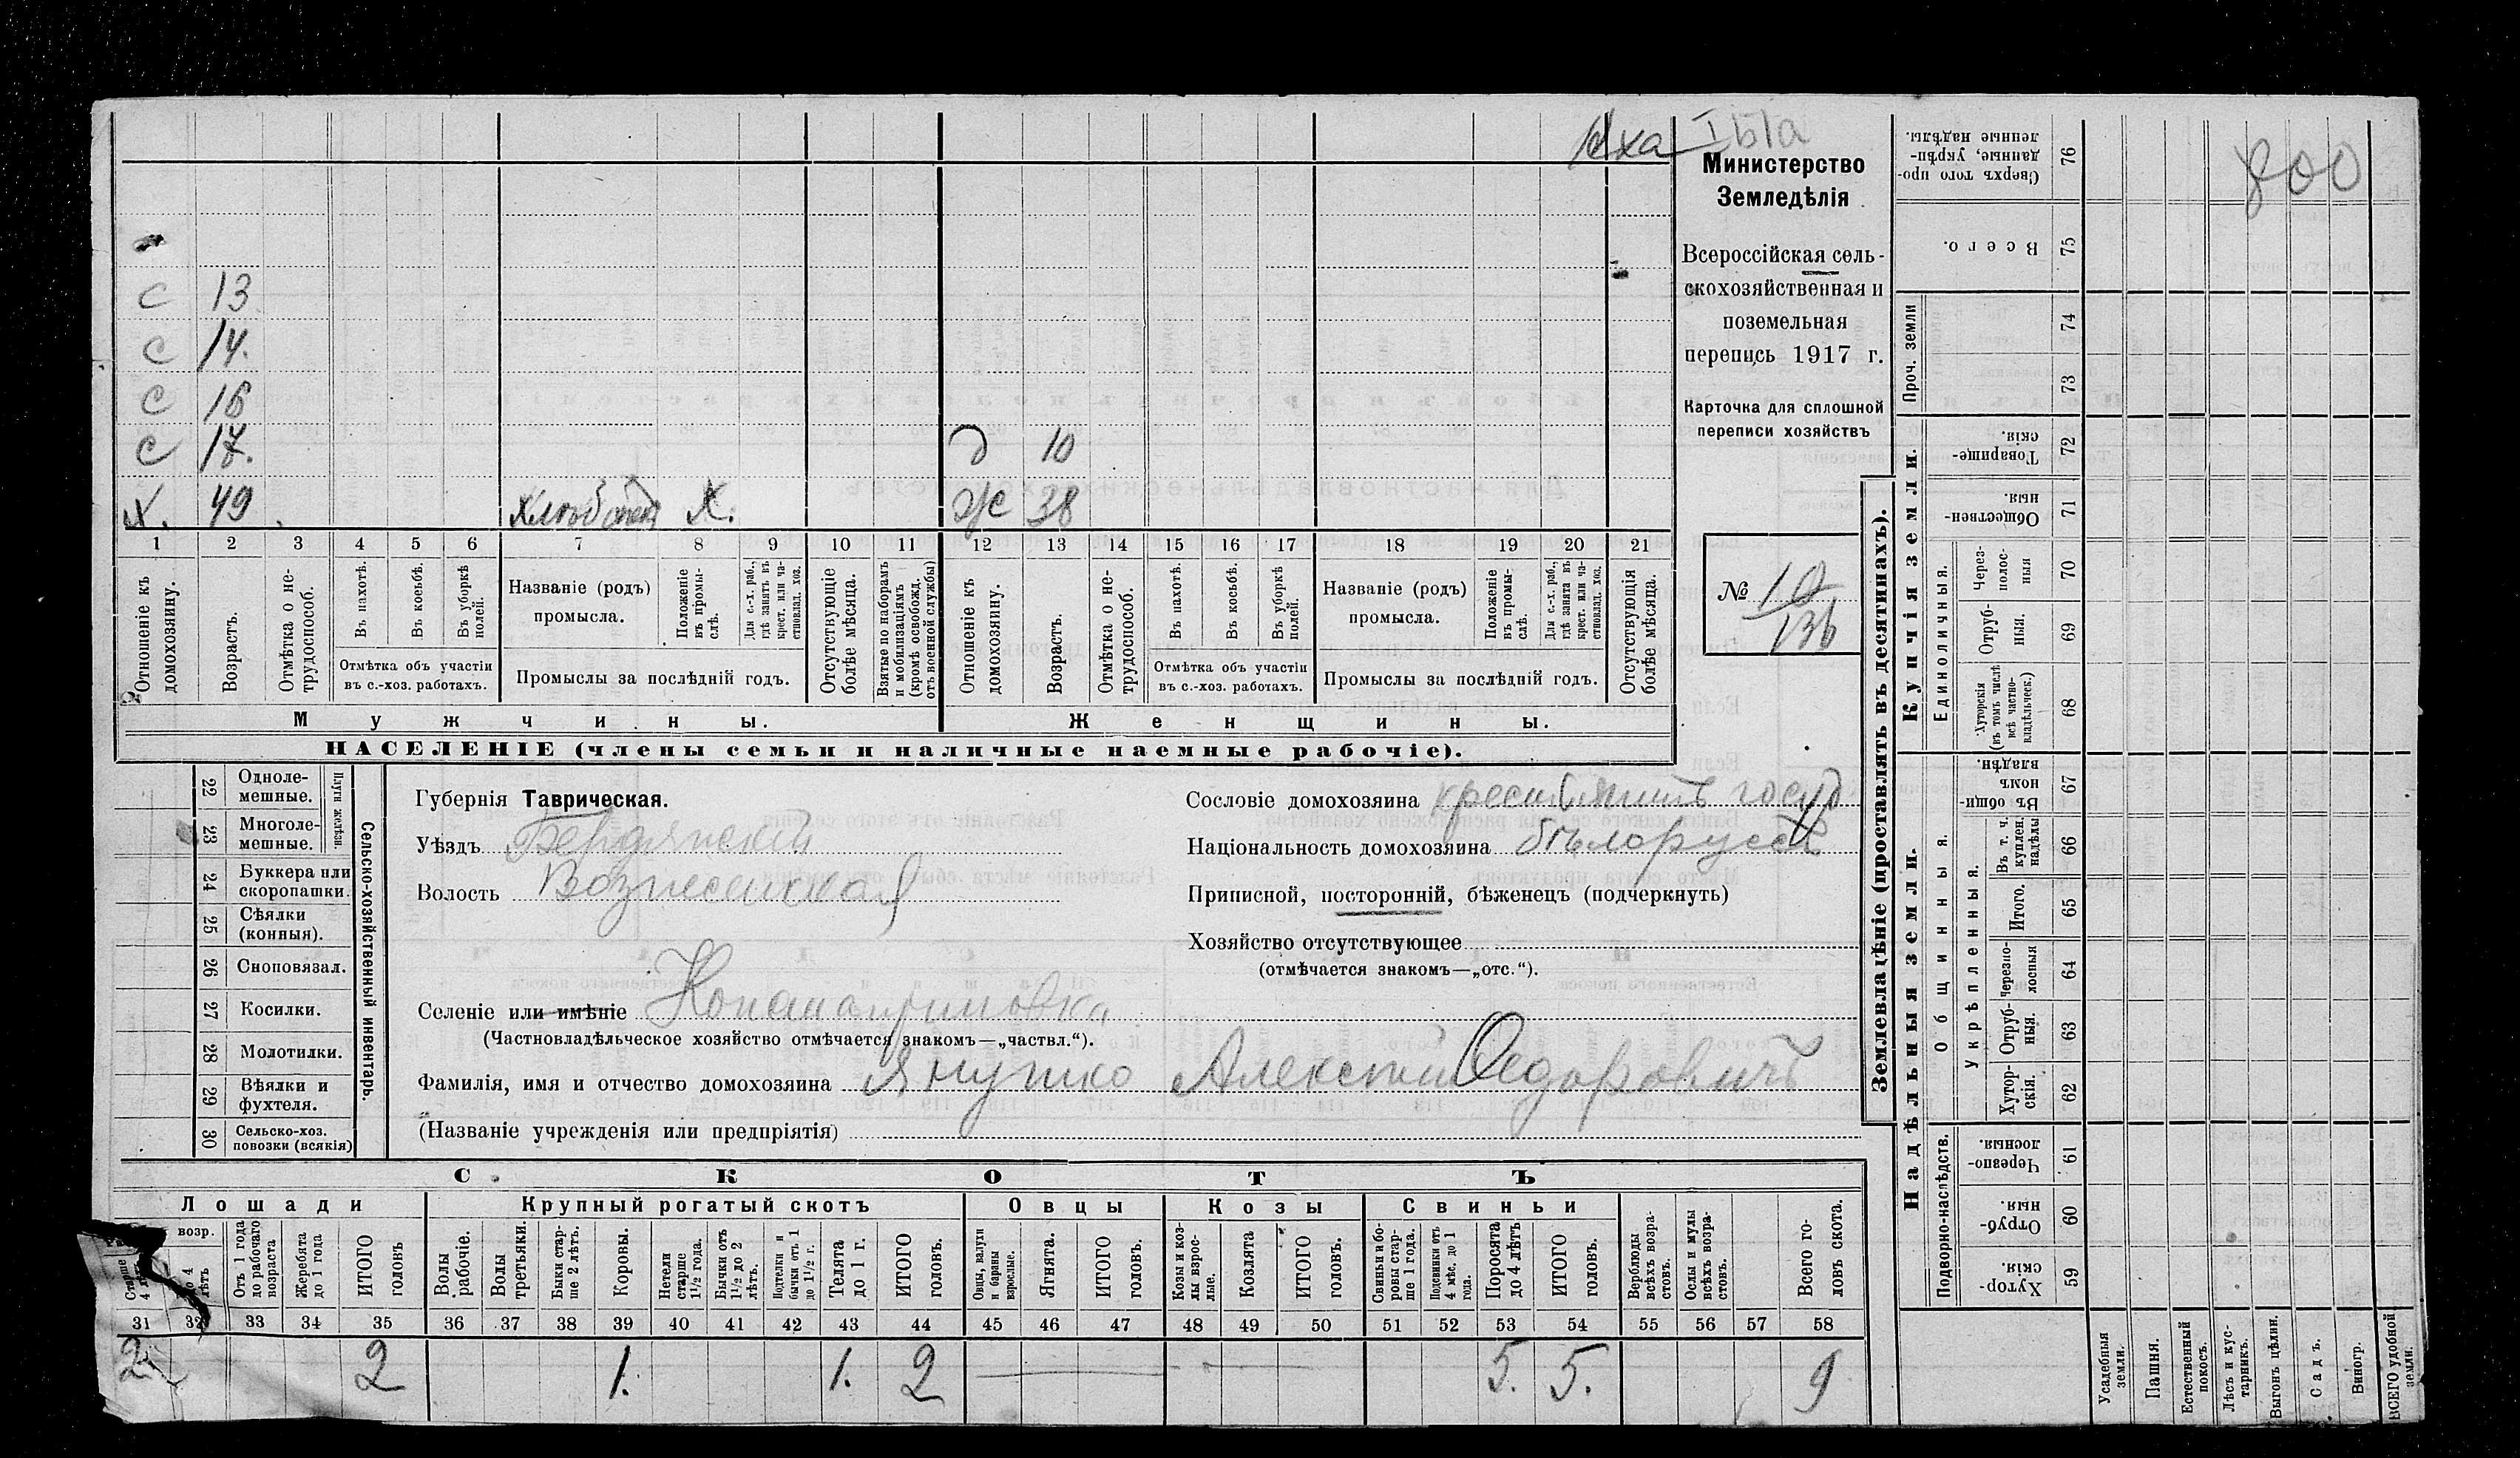 Iха I Ы а
800
Министерство
Земледѣлія
Всероссійская сель-
скохозяйственная и
поземельная
перепись 1917 г.
Карточка для сплошной
переписи хозяйствъ
с 13
с 14.
с 16
с 17. д 10
х. 49 х. ж 38
1 2 3 4 5 6 7 8 9 10 11 12 13 14 15 16 17 18 19 20 21
Отношеніе къ домохозяину.
Возрастъ.
Отмѣтка о не-трудоспособ.
Въ пахотѣ.
Въ косьбѣ.
Въ уборкѣ полей.
Отмѣтка объ участіи
въ с.-хоз. работахъ.
Названіе (родъ)
промысла.
Положеніе въ промы-слѣ.
Для с.-х. раб., гдѣ занятъ въ крест. или ча-стновлад. хоз.
Промыслы за послѣдній годъ.
Отсутствующіе болѣе мѣсяца.
Взятые по наборамъ и мобилизаціямъ (кромѣ освобожд. отъ военной службы)
Отношеніе къ домохозяину.
Возрастъ.
Отмѣтка о не-трудоспособ.
Въ пахотѣ.
Въ косьбѣ.
Въ уборкѣ полей.
Отмѣтка объ участіи
въ с.-хоз. работахъ.
Названіе (родъ)
промысла.
Положеніе въ промы-слѣ.
Для с.-х. раб., гдѣ занята въ крест. или ча-стновлад. хоз.
Промыслы за послѣдній годъ.
Отсутствующія болѣе мѣсяца.
Мужчины. Женщины.
НАСЕЛЕНІЕ (члены семьи и наличные наемные рабочіе).
№ 10
136
22 Одноле-мешные.
23 Многоле-мешные.
Плуги желѣзн.
24 Буккера или скоропашки.
25 Сѣялки (конныя).
26 Сноповязал.
27 Косилки.
28 Молотилки.
29 Вѣялки и фухтеля.
30 Сельско-хоз. повозки (всякія)
Сельско-хозяйственный инвентарь.
Губернія Таврическая.
Уѣздъ Бердянскій
Волость Вознесенская
Сословіе домохозяина крестьянинъ госуд
Національность домохозяина бѣлоруссъ
Приписной, посторонній, бѣженецъ (подчеркнуть)
Хозяйство отсутствующее
(отмѣчается знакомъ—„отс.“).
Селеніе или имѣніе
(Частновладѣльческое хозяйство отмѣчается знакомъ—„частвл.“).
Фамилія, имя и отчество домохозяина Янушко Алексѣй Ѳедоровичъ
(Названіе учрежденія или предпріятія)
СКОТЪ
Лошади Крупный рогатый скотъ Овцы Козы Свиньи
Старше 4 лѣтъ
возр.
до 4 лѣтъ
Отъ 1 года до рабочаго возраста
Жеребята до 1 года
ИТОГО головъ
Волы рабочіе.
Волы третьяки.
Быки стар-ше 2 лѣтъ.
Коровы.
Нетели старше 1½ года.
Бычки отъ 1½ до 2 лѣтъ.
Подтелки и бычки отъ 1 до 1½ г.
Телята до 1 г.
ИТОГО головъ.
Овцы, валухи и бараны взрослые.
Ягнята.
ИТОГО головъ.
Козы и коз-лы взрос-лые.
Козлята
ИТОГО головъ.
Свиньи и бо-ровы стар-ше 1 года.
Подсвинки отъ 4 мѣс. до 1 года.
Поросята до 4 лѣтъ
ИТОГО головъ.
Верблюды всѣхъ возра-стовъ.
Ослы и мулы всѣхъ возра-стовъ.
Всего го-ловъ скота.
31 32 33 34 35 36 37 38 39 40 41 42 43 44 45 46 47 48 49 50 51 52 53 54 55 56 57 58
2. 2 1. 1. 2 5. 5. 9
Землевладѣніе (проставлять въ десятинахъ).
Купчія земли.
Надѣльныя земли.
Сверхъ того про-данные, укрѣп-ленные надѣлы. 76
Всего. 75
Проч. земли 74
73
Товарище-скія. 72
Обществен-ныя. 71
Единоличныя.
Через-полос-ныя 70
Отруб-ныя. 69
Хуторскія (въ томъ числѣ всѣ частно-владѣльческ.) 68
Общинныя.
Въ общи-номъ владѣн. 67
Укрѣпленныя.
Въ т. ч. куплен. надѣлы 66
Итого. 65
Черезпо-лосныя 64
Отруб-ныя. 63
Хутор-скія. 62
Подворно-наслѣдств.
Черезпо-лосныя. 61
Отруб-ныя 60
Хутор-скія 59
Усадебныя земли.
Пашня.
Естественный покосъ.
Лѣсъ и кус-тарникъ.
Выгонъ цѣлин.
Садъ.
Виногр.
ВСЕГО удобной земли.